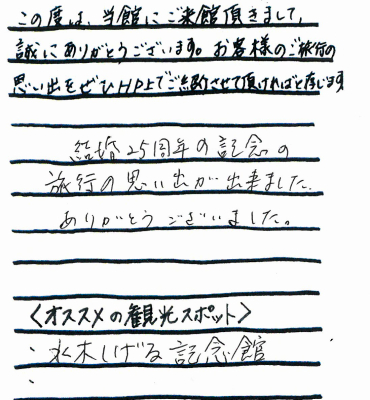 この度は、当館にご来館頂きまして、
誠にありがとうございます。お客様のご旅行の
思い出をぜひHP上でご紹介させて頂ければと存じます
結婚25周年の記念の
旅行の思い出が出来ました。
ありがとうございました。
〈オススメの観光スポット〉
・水木しげる記念館
・